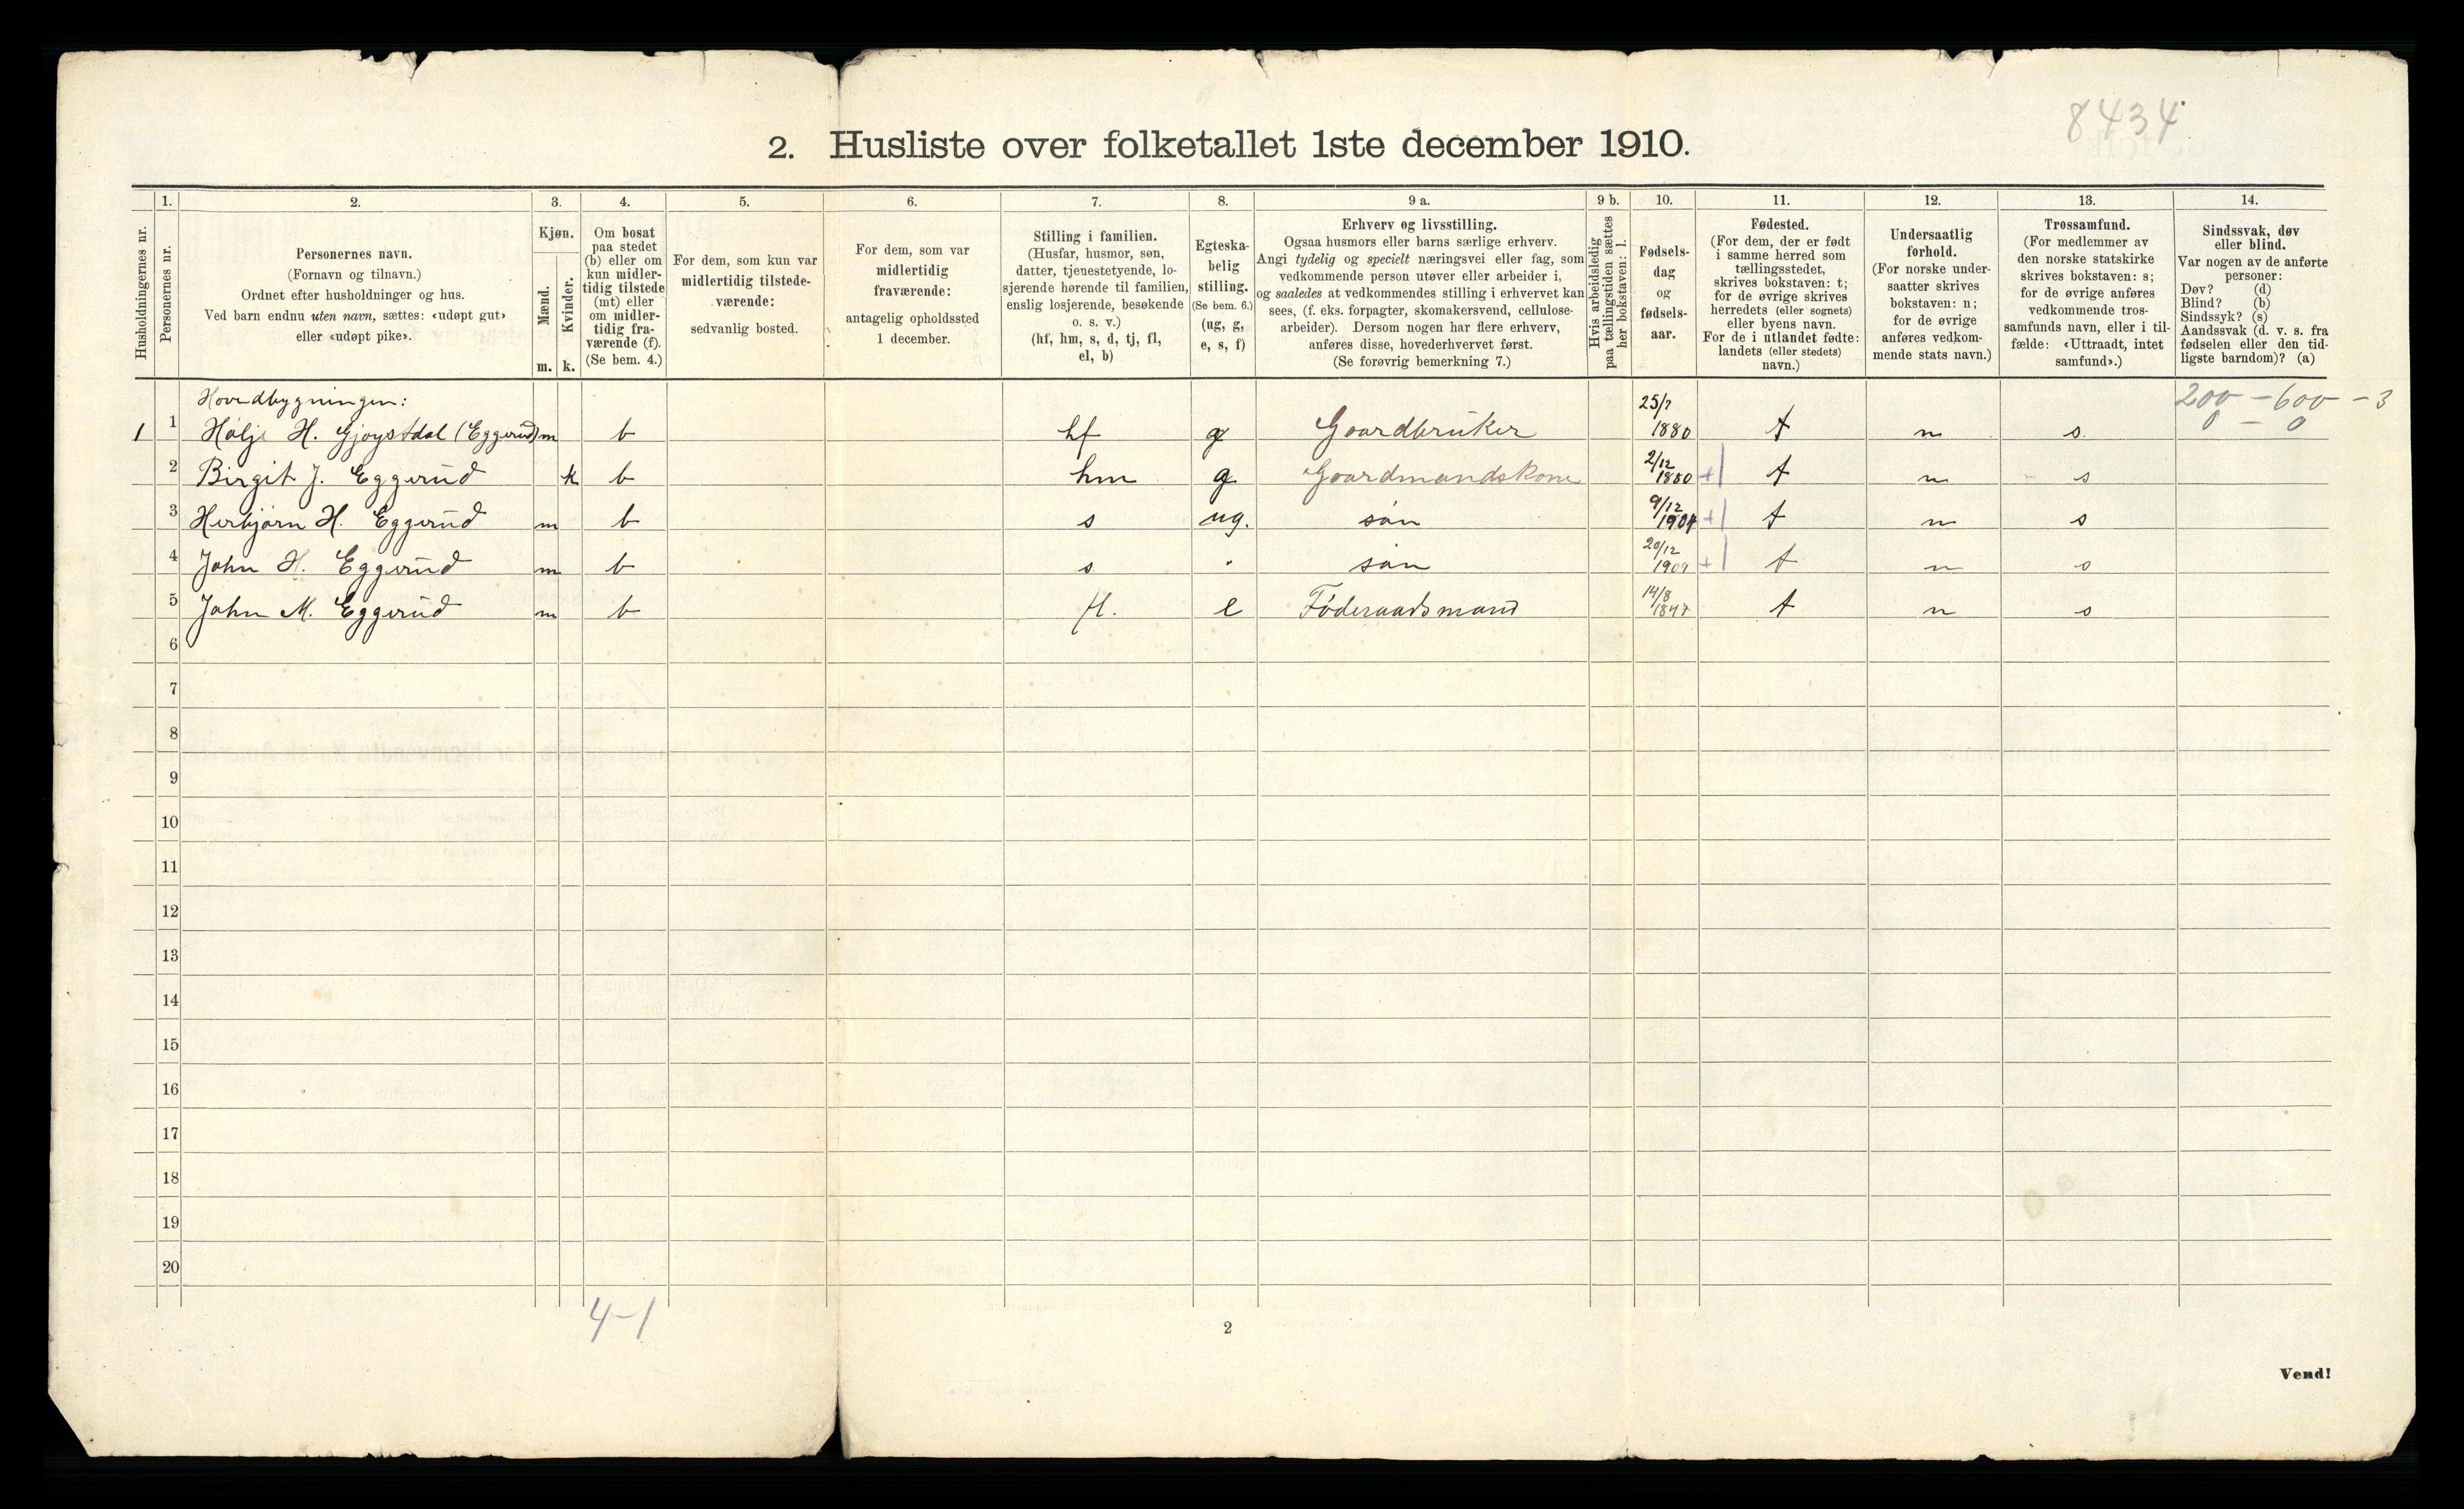 8434
2. Husliste over folketallet 1ste december 1910.
Husholdningernes nr.
1.
Personernes nr.
2.
Personernes navn.
(Fornavn og tilnavn.)
Ordnet efter husholdninger og hus.
Ved barn endnu uten navn, sættes: «udøpt gut»
eller «udøpt pike».
3.
Kjøn.
Mænd.
Kvinder.
m. k.
4.
Om bosat
paa stedet
(b) eller om
kun midler-
tidig tilstede
(mt) eller
om midler-
tidig fra-
værende (f).
(Se bem. 4.)
5.
For dem, som kun var
midlertidig tilstede-
værende:
sedvanlig bosted.
6.
For dem, som var
midlertidig
fraværende:
antagelig opholdssted
1 december.
7.
Stilling i familien.
(Husfar, husmor, søn,
datter, tjenestetyende, lo-
sjerende hørende til familien,
enslig losjerende, besøkende
o. s. v.)
(hf, hm, s, d, tj, fl,
el, b)
8.
Egteska-
belig
stilling.
(Se bem. 6.)
(ug, g,
e, s, f)
9 a.
Erhverv og livsstilling.
Ogsaa husmors eller barns særlige erhverv.
Angi tydelig og specielt næringsvei eller fag, som
vedkommende person utøver eller arbeider i,
og saaledes at vedkommendes stilling i erhvervet kan
sees, (f. eks. forpagter, skomakersvend, cellulose-
arbeider). Dersom nogen har flere erhverv,
anføres disse, hovederhvervet først.
(Se forøvrig bemerkning 7.)
9 b.
Hvis arbeidsledig
paa tællingstiden sættes
her bokstaven: l.
10.
Fødsels-
dag
og
fødsels-
aar.
11.
Fødested.
(For dem, der er født
i samme herred som
tællingsstedet,
skrives bokstaven: t;
for de øvrige skrives
herredets (eller sognets)
eller byens navn.
For de i utlandet fødte:
landets (eller stedets)
navn.)
12.
Undersaatlig
forhold.
(For norske under-
saatter skrives
bokstaven: n;
for de øvrige
anføres vedkom-
mende stats navn.)
13.
Trossamfund.
(For medlemmer av
den norske statskirke
skrives bokstaven: s;
for de øvrige anføres
vedkommende tros-
samfunds navn, eller i til-
fælde: «Uttraadt, intet
samfund».)
14.
Sindssvak, døv
eller blind.
Var nogen av de anførte
personer:
Døv? (d)
Blind? (b)
Sindssyk? (s)
Aandssvak (d. v. s. fra
fødselen eller den tid-
ligste barndom)? (a)
Hovedbygningen: 200 - 600 - 3
1 1 Halje H. Gjøystdal (Eggerud) m b hf g Gaardbruker 25/7 1880 t n s 0 - 0
2 Birgit J. Eggerud k b hm g Gaardmandskone 2/12 1880 +1 t n s
3 Herbjørn H. Eggerud m b s ug. søn 9/12 1904 +1 t n s
4 John H. Eggerud m b s " søn 20/12 1909 +1 t n s
5 John M. Eggerud m b fl. e Føderaadsmand 14/8 1847 t n s
6
7
8
9
10
11
12
13
14
15
16
17
18
19
20
4-1
2
Vend!